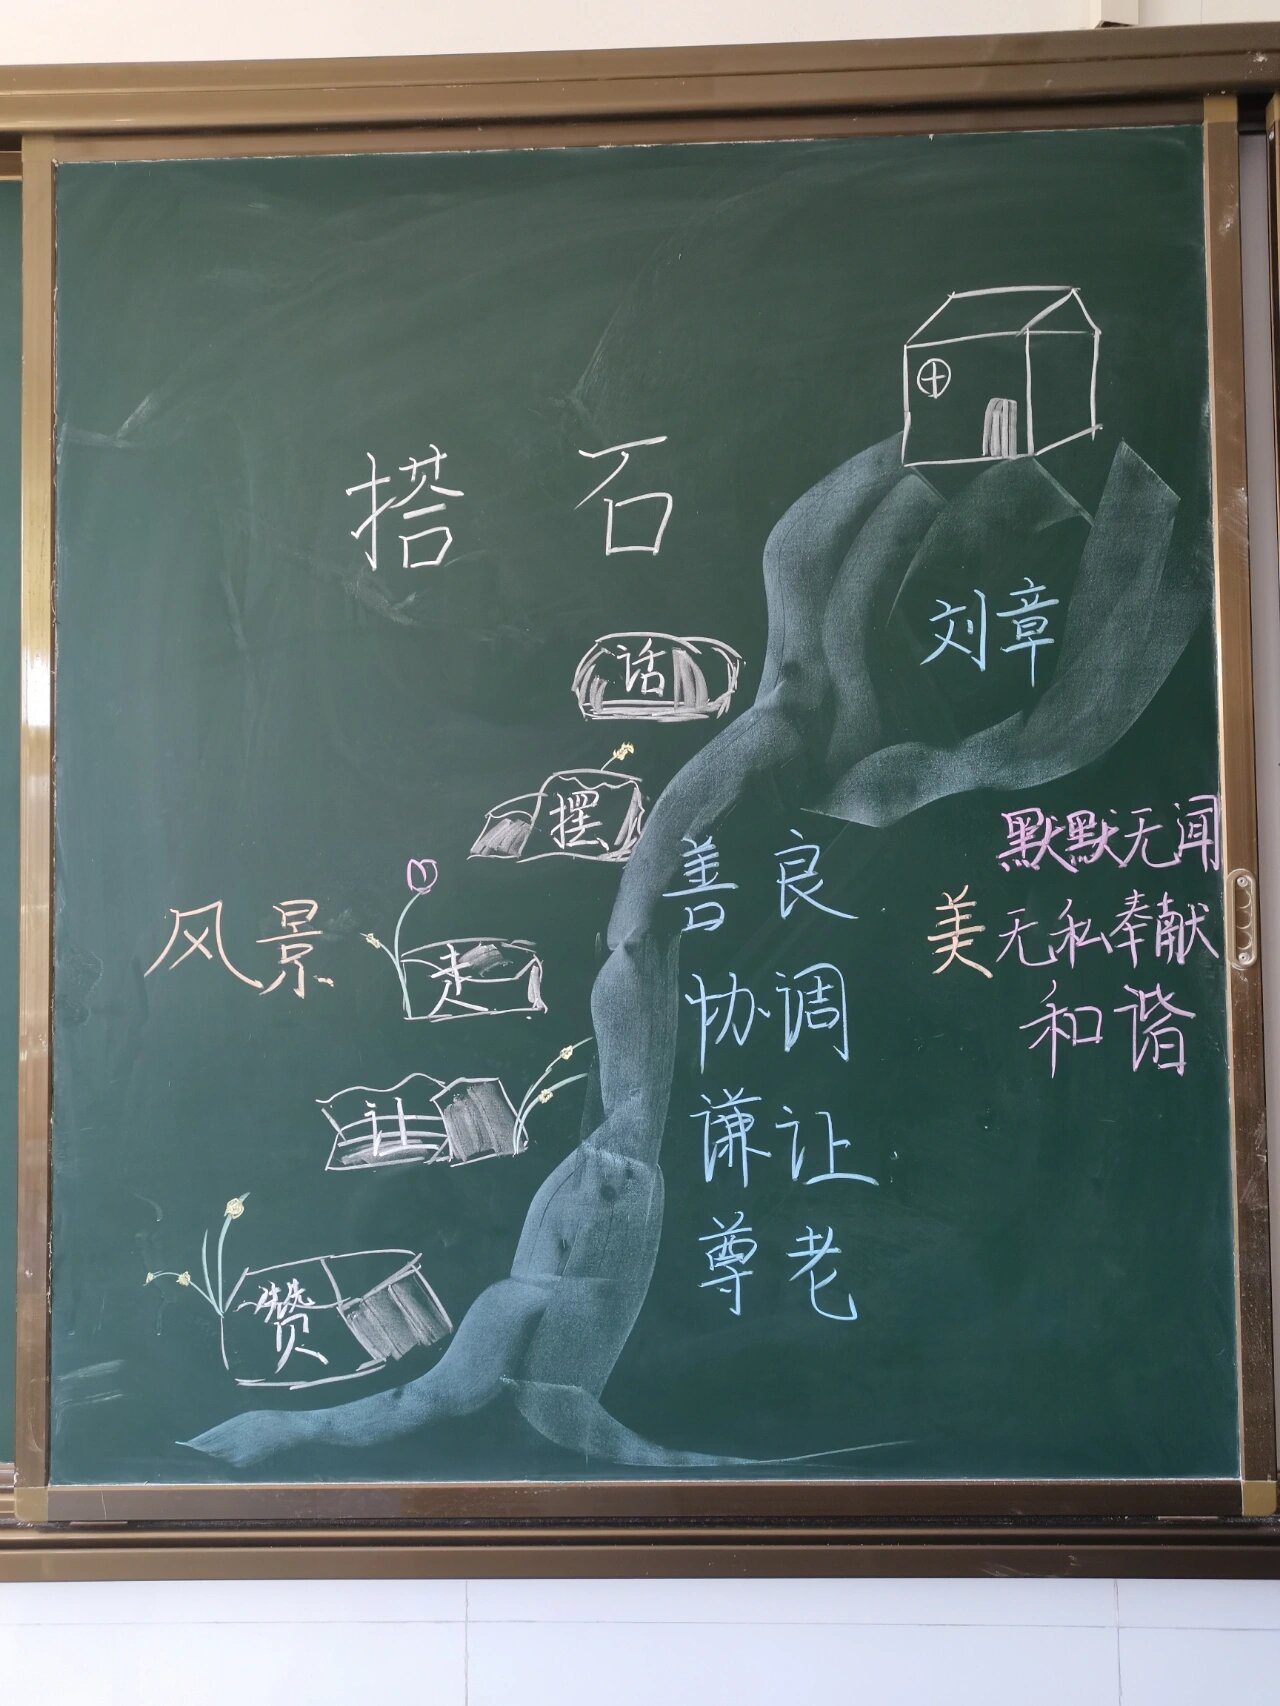 搭石
刘章
话
摆
走
让
赞
风景
善良
协调
谦让
尊老
美
默默无闻
无私奉献
和谐